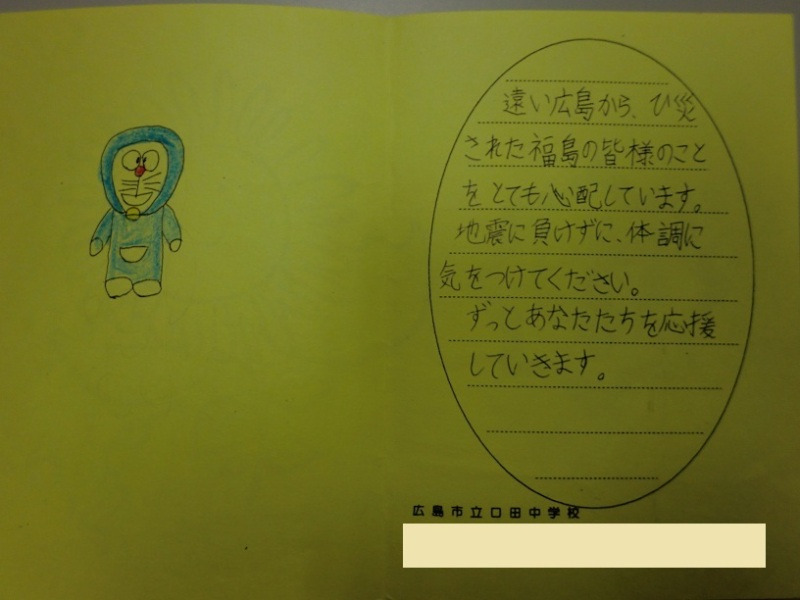 遠い広島から、ひ災
された福島の皆様のこと
をとても心配しています。
地震に負けずに、体調に
気をつけてください。
ずっとあなたたちを応援
していきます。
広島市立口田中学校